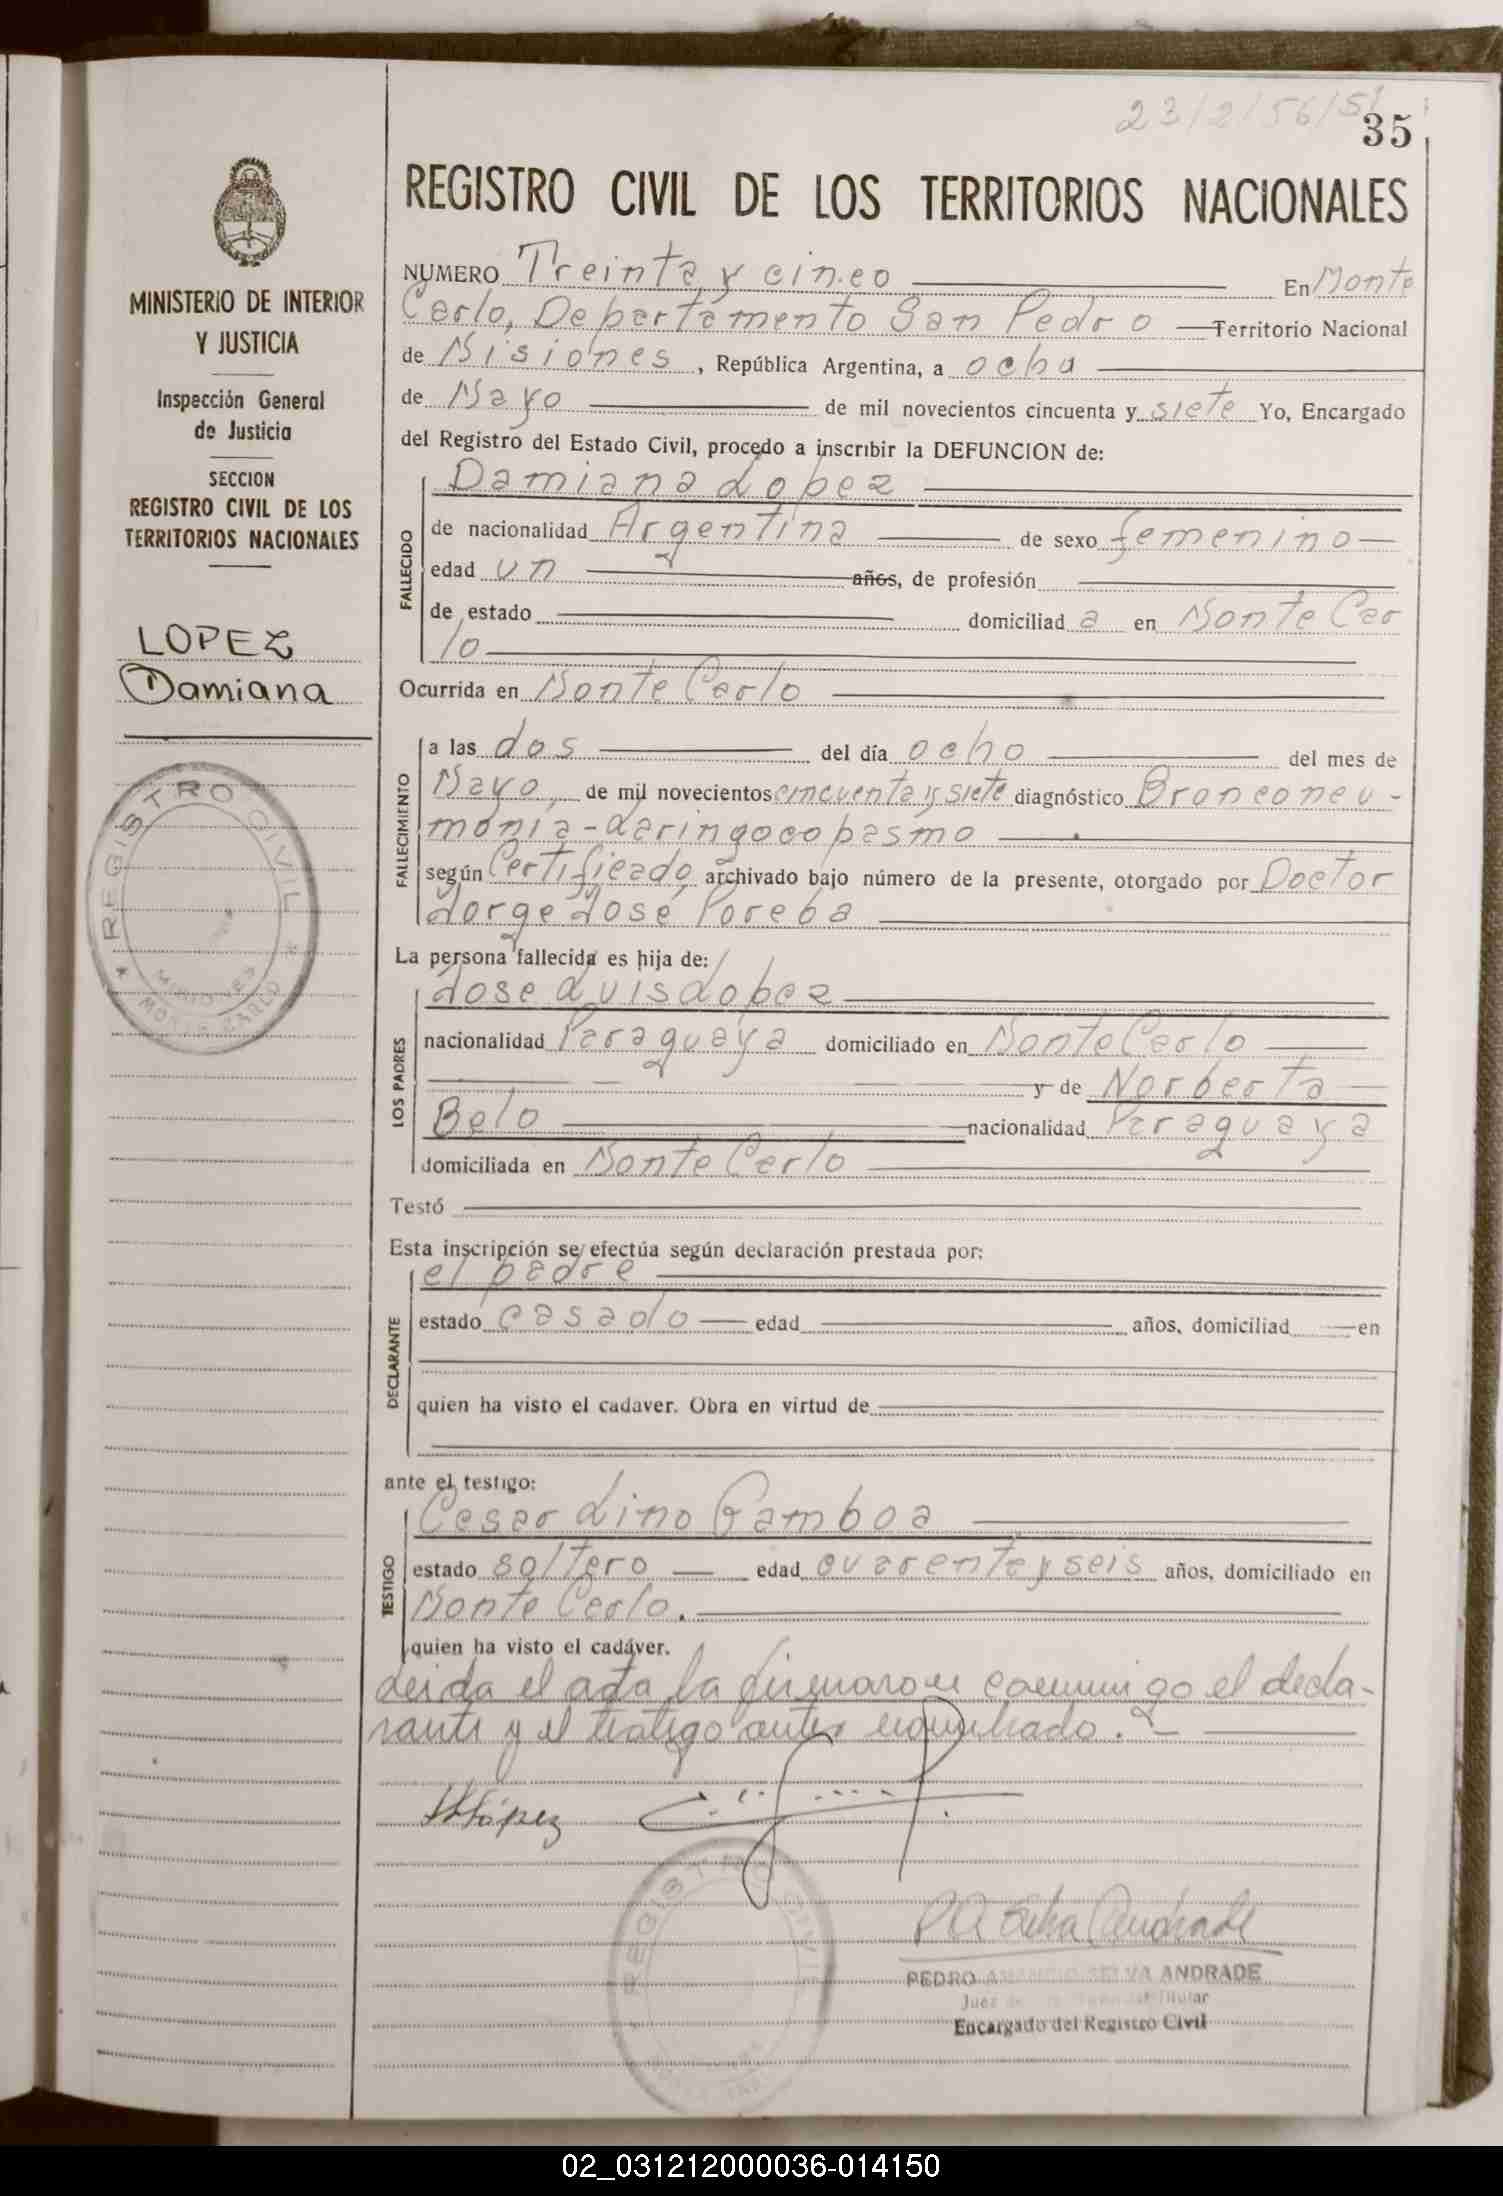 23/2/56/51
35
MINISTERIO DE INTERIOR
Y JUSTICIA
Inspección General
de Justicia
SECCION
REGISTRO CIVIL DE LOS
TERRITORIOS NACIONALES
LOPEZ
Damiana
REGISTRO CIVIL
MISIONES
MONTE CARLO
REGISTRO CIVIL DE LOS TERRITORIOS NACIONALES
NUMERO Treinta y cinco En Monte
Carlo, Departamento San Pedro Territorio Nacional
de Misiones, República Argentina, a ocho
de Mayo de mil novecientos cincuenta y siete Yo, Encargado
del Registro del Estado Civil, procedo a inscribir la DEFUNCION de:
FALLECIDO
Damiana Lopez
de nacionalidad Argentina de sexo femenino
edad un años, de profesión
de estado domiciliad a en Monte Car
lo
Ocurrida en Monte Carlo
FALLECIMIENTO
a las dos del día ocho del mes de
Mayo, de mil novecientos cincuenta y siete diagnóstico Bronconeu-
monia-Laringocopasmo
según Certificado archivado bajo número de la presente, otorgado por Doctor
Jorge José Poreba
La persona fallecida es hija de:
LOS PADRES
Jose Luis Lopez
nacionalidad Paraguaya domiciliado en Monte Carlo
y de Norberta
Belo nacionalidad Paraguaya
domiciliada en Monte Carlo
Testó
Esta inscripción se efectúa según declaración prestada por:
DECLARANTE
el padre
estado casado edad años, domiciliad en
quien ha visto el cadaver. Obra en virtud de
ante el testigo:
TESTIGO
Cesar Lino Gamboa
estado soltero edad cuarenta y seis años, domiciliado en
Monte Carlo.
quien ha visto el cadáver.
Leida el acta la firmaron conmigo el decla-
rante y el testigo antes nombrado.
López
REGISTRO CIVIL
PEDRO AMANCIO SELVA ANDRADE
Juez de Titular
Encargado del Registro Civil
02_031212000036-014150